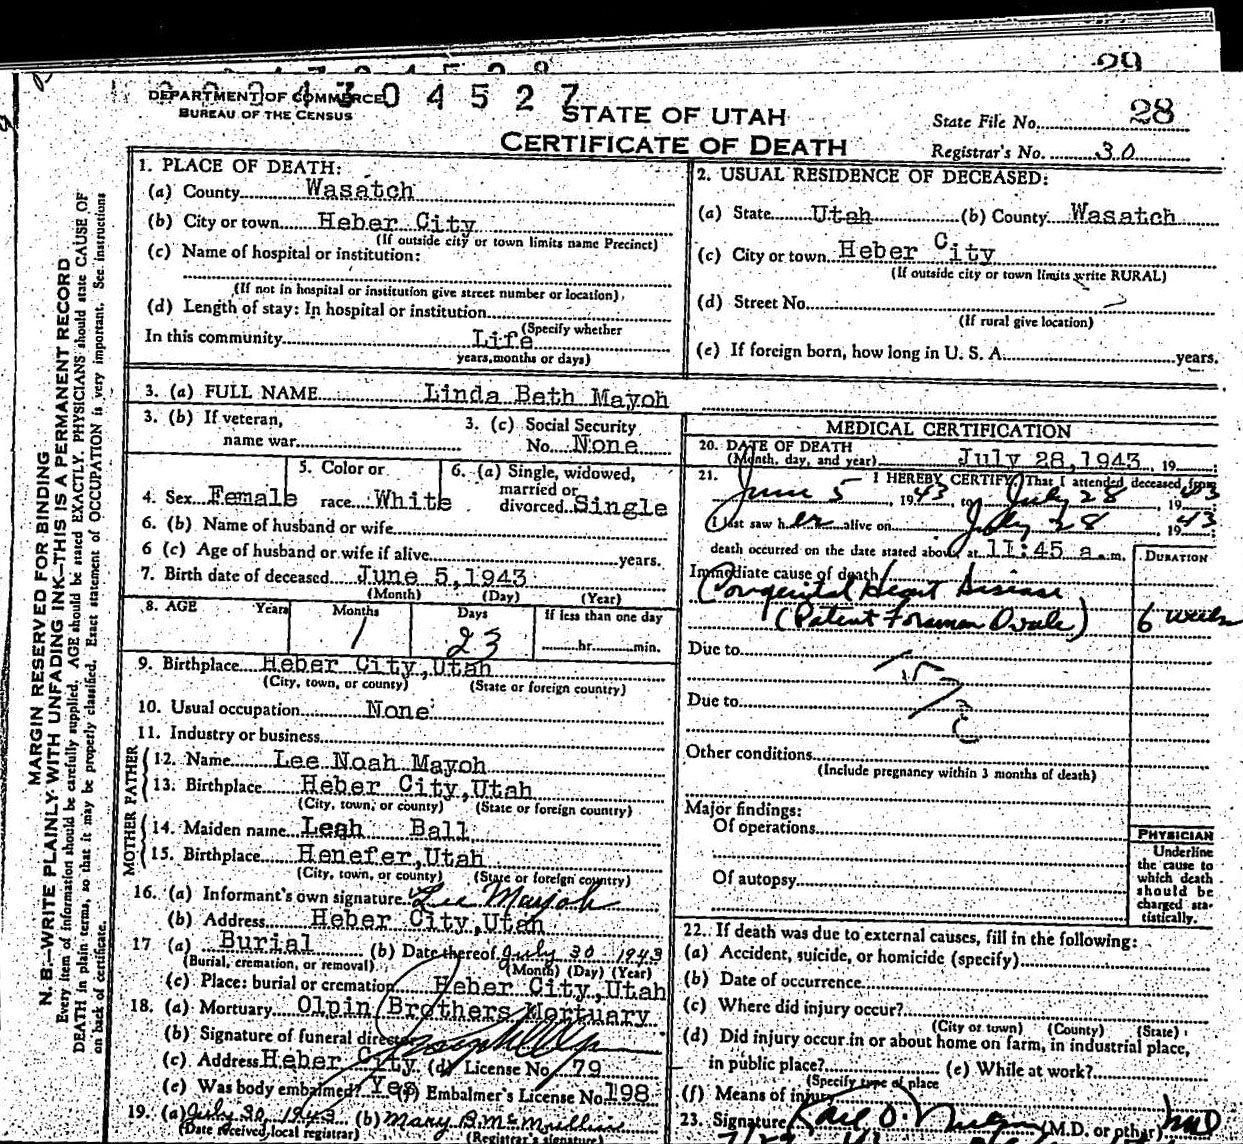 29
DEPARTMENT OF COMMERCE
BUREAU OF THE CENSUS
04527
STATE OF UTAH
CERTIFICATE OF DEATH
State File No. 28
Registrar's No. 30
MARGIN RESERVED FOR BINDING
N. B.—WRITE PLAINLY WITH UNFADING INK—THIS IS A PERMANENT RECORD
Every item of information should be carefully supplied. AGE should be stated EXACTLY. PHYSICIANS should state CAUSE OF
DEATH in plain terms, so that it may be properly classified. Exact statement of OCCUPATION is very important. See instructions
on back of certificate.
1. PLACE OF DEATH:
(a) County Wasatch
(b) City or town Heber City
(If outside city or town limits name Precinct)
(c) Name of hospital or institution:
(If not in hospital or institution give street number or location)
(d) Length of stay: In hospital or institution
(Specify whether
In this community Life
years, months or days)
2. USUAL RESIDENCE OF DECEASED:
(a) State Utah (b) County Wasatch
(c) City or town Heber City
(If outside city or town limits write RURAL)
(d) Street No.
(If rural give location)
(e) If foreign born, how long in U. S. A. years.
3. (a) FULL NAME Linda Beth Mayoh
3. (b) If veteran,
name war
3. (c) Social Security
No. None
4. Sex Female
5. Color or
race White
6. (a) Single, widowed,
married or
divorced Single
6. (b) Name of husband or wife
6 (c) Age of husband or wife if alive years.
7. Birth date of deceased June 5, 1943
(Month) (Day) (Year)
8. AGE Years Months Days If less than one day
1 23 hr. min.
9. Birthplace Heber City, Utah
(City, town, or county) (State or foreign country)
10. Usual occupation None
11. Industry or business
FATHER
12. Name Lee Noah Mayoh
13. Birthplace Heber City, Utah
(City, town, or county) (State or foreign country)
MOTHER
14. Maiden name Leah Ball
15. Birthplace Henefer, Utah
(City, town, or county) (State or foreign country)
16. (a) Informant's own signature Lee Mayoh
(b) Address Heber City, Utah
17 (a) Burial (b) Date thereof July 30 1943
(Burial, cremation, or removal) (Month) (Day) (Year)
(c) Place: burial or cremation Heber City, Utah
18. (a) Mortuary Olpin Brothers Mortuary
(b) Signature of funeral director
(c) Address Heber City (d) License No. 79
(e) Was body embalmed? Yes (f) Embalmer's License No. 198
19. (a) July 30, 1943 (b) Mary B. McMullin
(Date received local registrar) (Registrar's signature)
MEDICAL CERTIFICATION
20. DATE OF DEATH
(Month, day, and year) July 28, 1943 19
21. I HEREBY CERTIFY, That I attended deceased from
June 5 1943 to July 28, 1943
I last saw her alive on July 28 1943
death occurred on the date stated above at 11:45 a.m.
DURATION
Immediate cause of death
Congenital Heart Disease
(Patent Foramen Ovale) 6 weeks
Due to
Due to
Other conditions
(Include pregnancy within 3 months of death)
Major findings:
Of operations
Of autopsy
PHYSICIAN
Underline
the cause to
which death
should be
charged sta-
tistically.
22. If death was due to external causes, fill in the following:
(a) Accident, suicide, or homicide (specify)
(b) Date of occurrence
(c) Where did injury occur?
(City or town) (County) (State)
(d) Did injury occur in or about home on farm, in industrial place,
in public place? (e) While at work?
(Specify type of place
(f) Means of injury
23. Signature (M.D. or other) MD